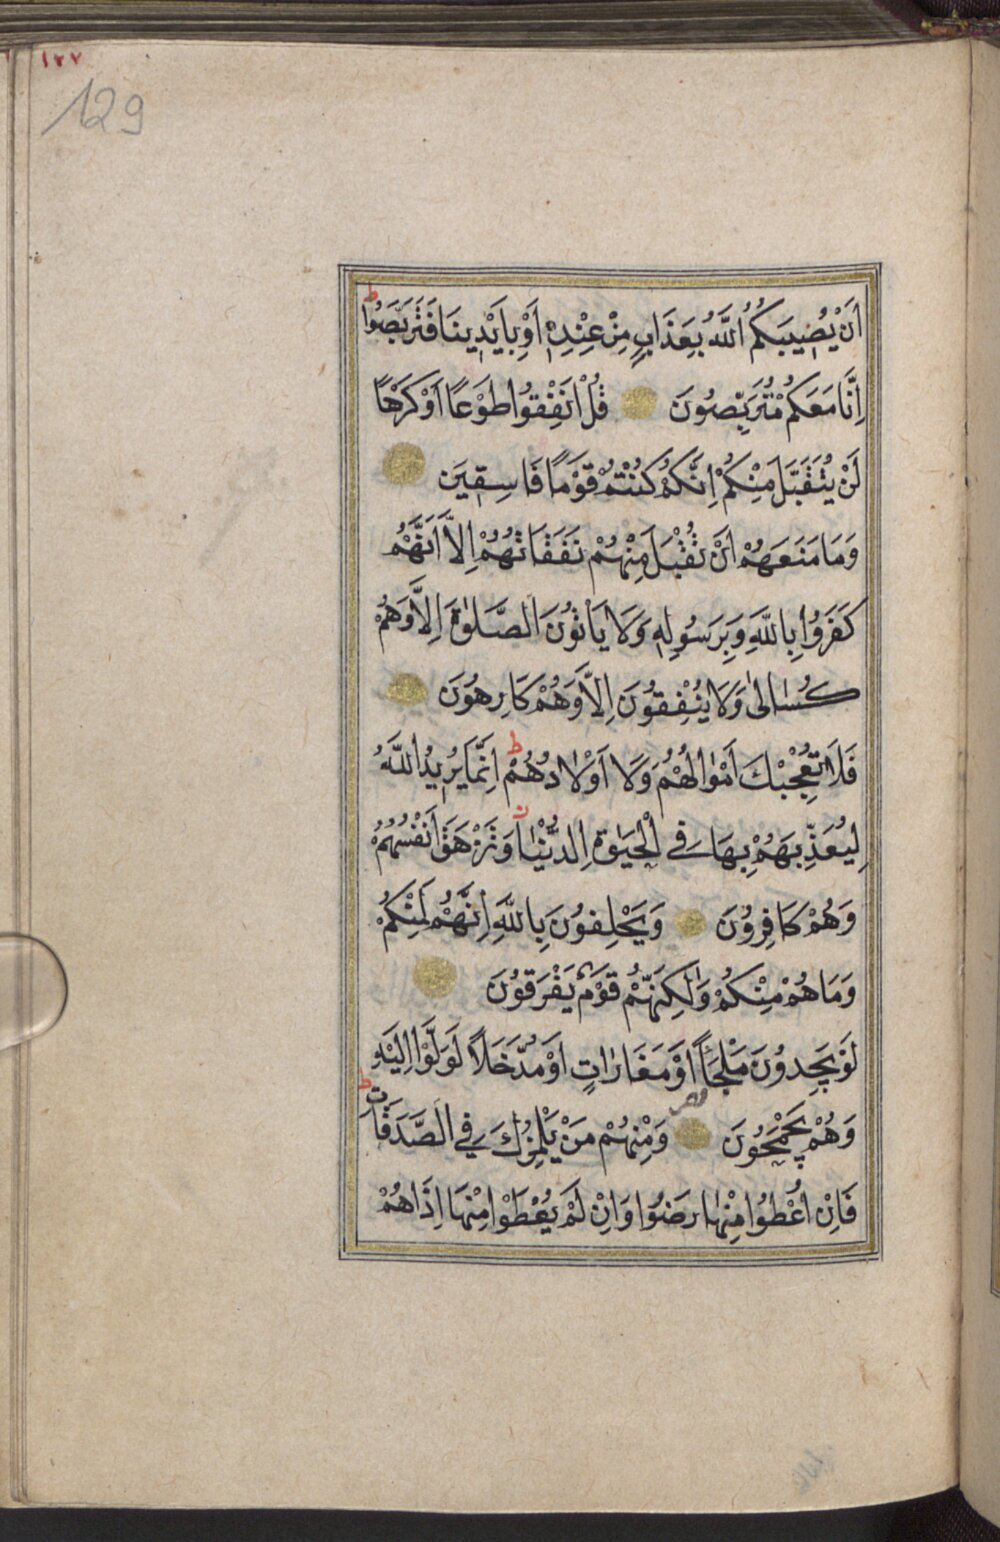 ١٢٧
129
اَنْ يُصٖيبَكُمُ اللّٰهُ بِعَذَابٍ مِنْ عِنْدِهٖ اَوْ بِاَيْدٖينَا فَتَرَبَّصُوا ط
اِنَّا مَعَكُمْ مُتَرَبِّصُونَ قُلْ اَنْفِقُوا طَوْعًا اَوْ كَرْهًا
لَنْ يُتَقَبَّلَ مِنْكُمْ اِنَّكُمْ كُنْتُمْ قَوْمًا فَاسِقٖينَ
وَمَا مَنَعَهُمْ اَنْ تُقْبَلَ مِنْهُمْ نَفَقَاتُهُمْ اِلَّا اَنَّهُمْ
كَفَرُوا بِاللّٰهِ وَبِرَسُولِهٖ وَلَا يَاْتُونَ الصَّلٰوةَ اِلَّا وَهُمْ
كُسَالٰى وَلَا يُنْفِقُونَ اِلَّا وَهُمْ كَارِهُونَ
فَلَا تُعْجِبْكَ اَمْوَالُهُمْ وَلَا اَوْلَادُهُمْ ط اِنَّمَا يُرٖيدُ اللّٰهُ
لِيُعَذِّبَهُمْ بِهَا فِي الْحَيٰوةِ الدُّنْيَا وَتَزْهَقَ اَنْفُسُهُمْ
وَهُمْ كَافِرُونَ وَيَحْلِفُونَ بِاللّٰهِ اِنَّهُمْ لَمِنْكُمْ
وَمَا هُمْ مِنْكُمْ وَلٰكِنَّهُمْ قَوْمٌ يَفْرَقُونَ
لَوْ يَجِدُونَ مَلْجَأً اَوْ مَغَارَاتٍ اَوْ مُدَّخَلًا لَوَلَّوْا اِلَيْهِ
وَهُمْ يَجْمَحُونَ وَمِنْهُمْ مَنْ يَلْمِزُكَ فِي الصَّدَقَاتِ ط
فَاِنْ اُعْطُوا مِنْهَا رَضُوا وَاِنْ لَمْ يُعْطَوْا مِنْهَا اِذَا هُمْ